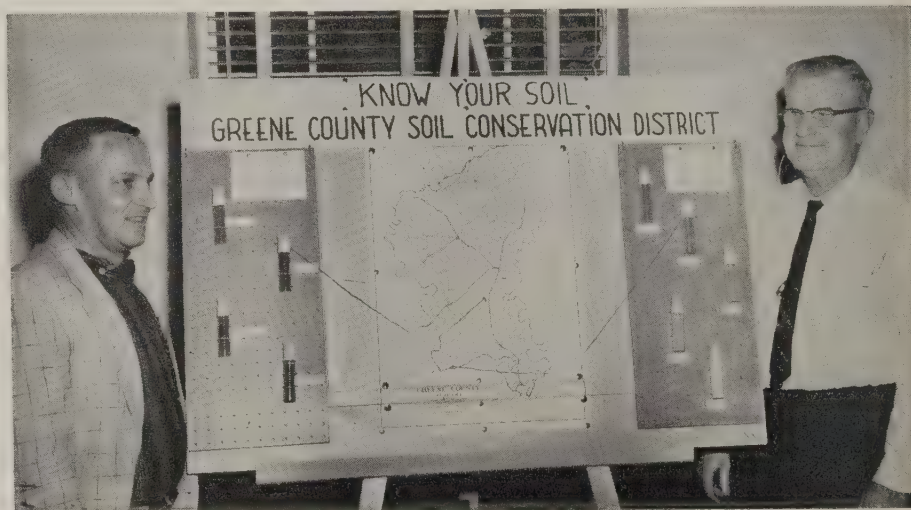 KNOW YOUR SOIL
GREENE COUNTY SOIL CONSERVATION DISTRICT
GREENE COUNTY